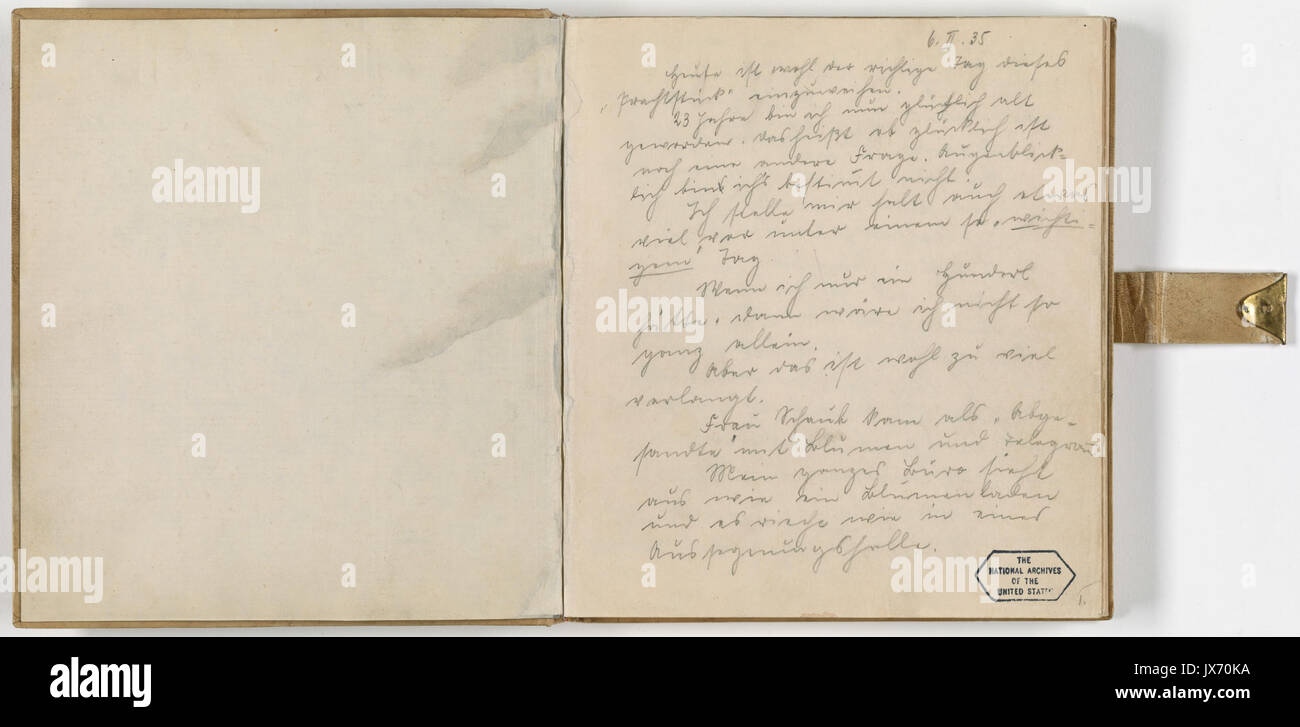 6. II. 35
Heute ist wohl der richtige Tag dieses
„Prachtstück" einzuweihen.
23 Jahre bin ich nun glücklich alt
geworden. Das heißt ob glücklich ist
noch eine andere Frage. Augenblick=
lich bin ich's bestimmt nicht.
Ich stelle mir halt auch etwas
viel vor unter einem so „wichti=
gem" Tag.
Wenn ich nur ein Hunderl
hätte, dann wäre ich nicht so
ganz allein.
Aber das ist wohl zu viel
verlangt.
Frau Schaub kam als „Abge=
sandte" mit Blumen und Telegram
Mein ganzes Büro sieht
aus wie ein Blumenladen
und es riecht wie in einer
Aussegnungshalle.
THE
NATIONAL ARCHIVES
OF THE
UNITED STATES
1.
alamy
alamy
alamy
alamy
alamy
alamy
a
a
a
a
a
a
a
a
alamy
Image ID: JX70KA
www.alamy.com